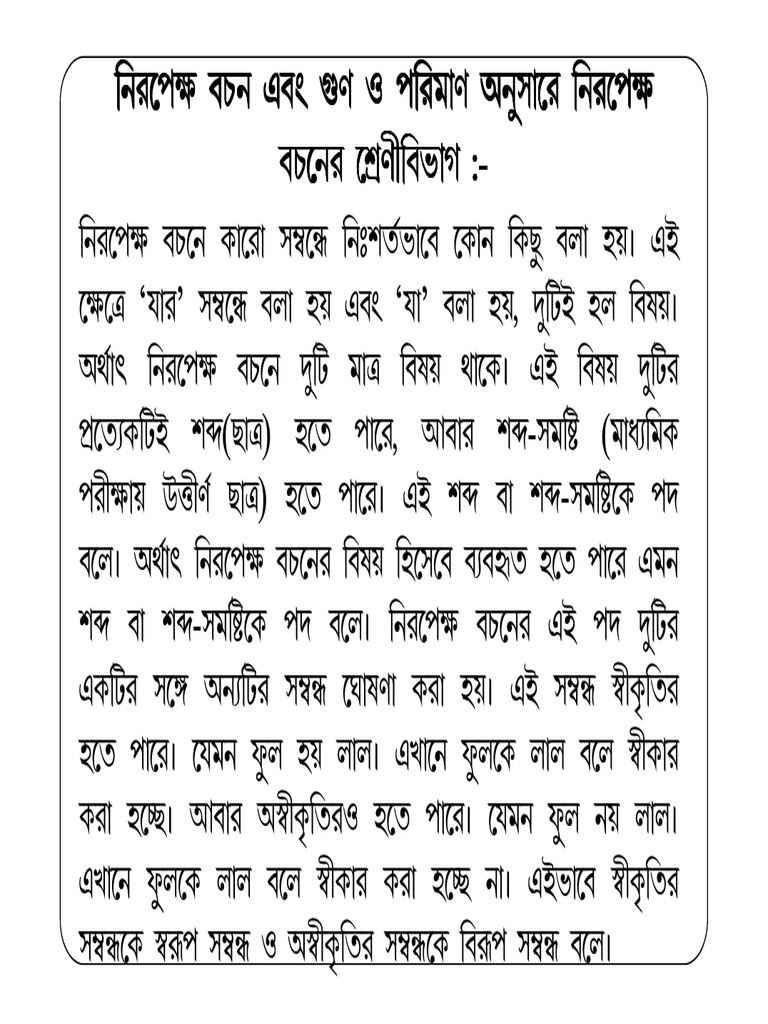 নিরপেক্ষ বচন এবং গুণ ও পরিমাণ অনুসারে নিরপেক্ষ
বচনের শ্রেণীবিভাগ :-
নিরপেক্ষ বচনে কারো সম্বন্ধে নিঃশর্তভাবে কোন কিছু বলা হয়। এই
ক্ষেত্রে ‘যার’ সম্বন্ধে বলা হয় এবং ‘যা’ বলা হয়, দুটিই হল বিষয়।
অর্থাৎ নিরপেক্ষ বচনে দুটি মাত্র বিষয় থাকে। এই বিষয় দুটির
প্রত্যেকটিই শব্দ(ছাত্র) হতে পারে, আবার শব্দ-সমষ্টি (মাধ্যমিক
পরীক্ষায় উত্তীর্ণ ছাত্র) হতে পারে। এই শব্দ বা শব্দ-সমষ্টিকে পদ
বলে। অর্থাৎ নিরপেক্ষ বচনের বিষয় হিসেবে ব্যবহৃত হতে পারে এমন
শব্দ বা শব্দ-সমষ্টিকে পদ বলে। নিরপেক্ষ বচনের এই পদ দুটির
একটির সঙ্গে অন্যটির সম্বন্ধ ঘোষণা করা হয়। এই সম্বন্ধ স্বীকৃতির
হতে পারে। যেমন ফুল হয় লাল। এখানে ফুলকে লাল বলে স্বীকার
করা হচ্ছে। আবার অস্বীকৃতিরও হতে পারে। যেমন ফুল নয় লাল।
এখানে ফুলকে লাল বলে স্বীকার করা হচ্ছে না। এইভাবে স্বীকৃতির
সম্বন্ধকে স্বরূপ সম্বন্ধ ও অস্বীকৃতির সম্বন্ধকে বিরূপ সম্বন্ধ বলে।